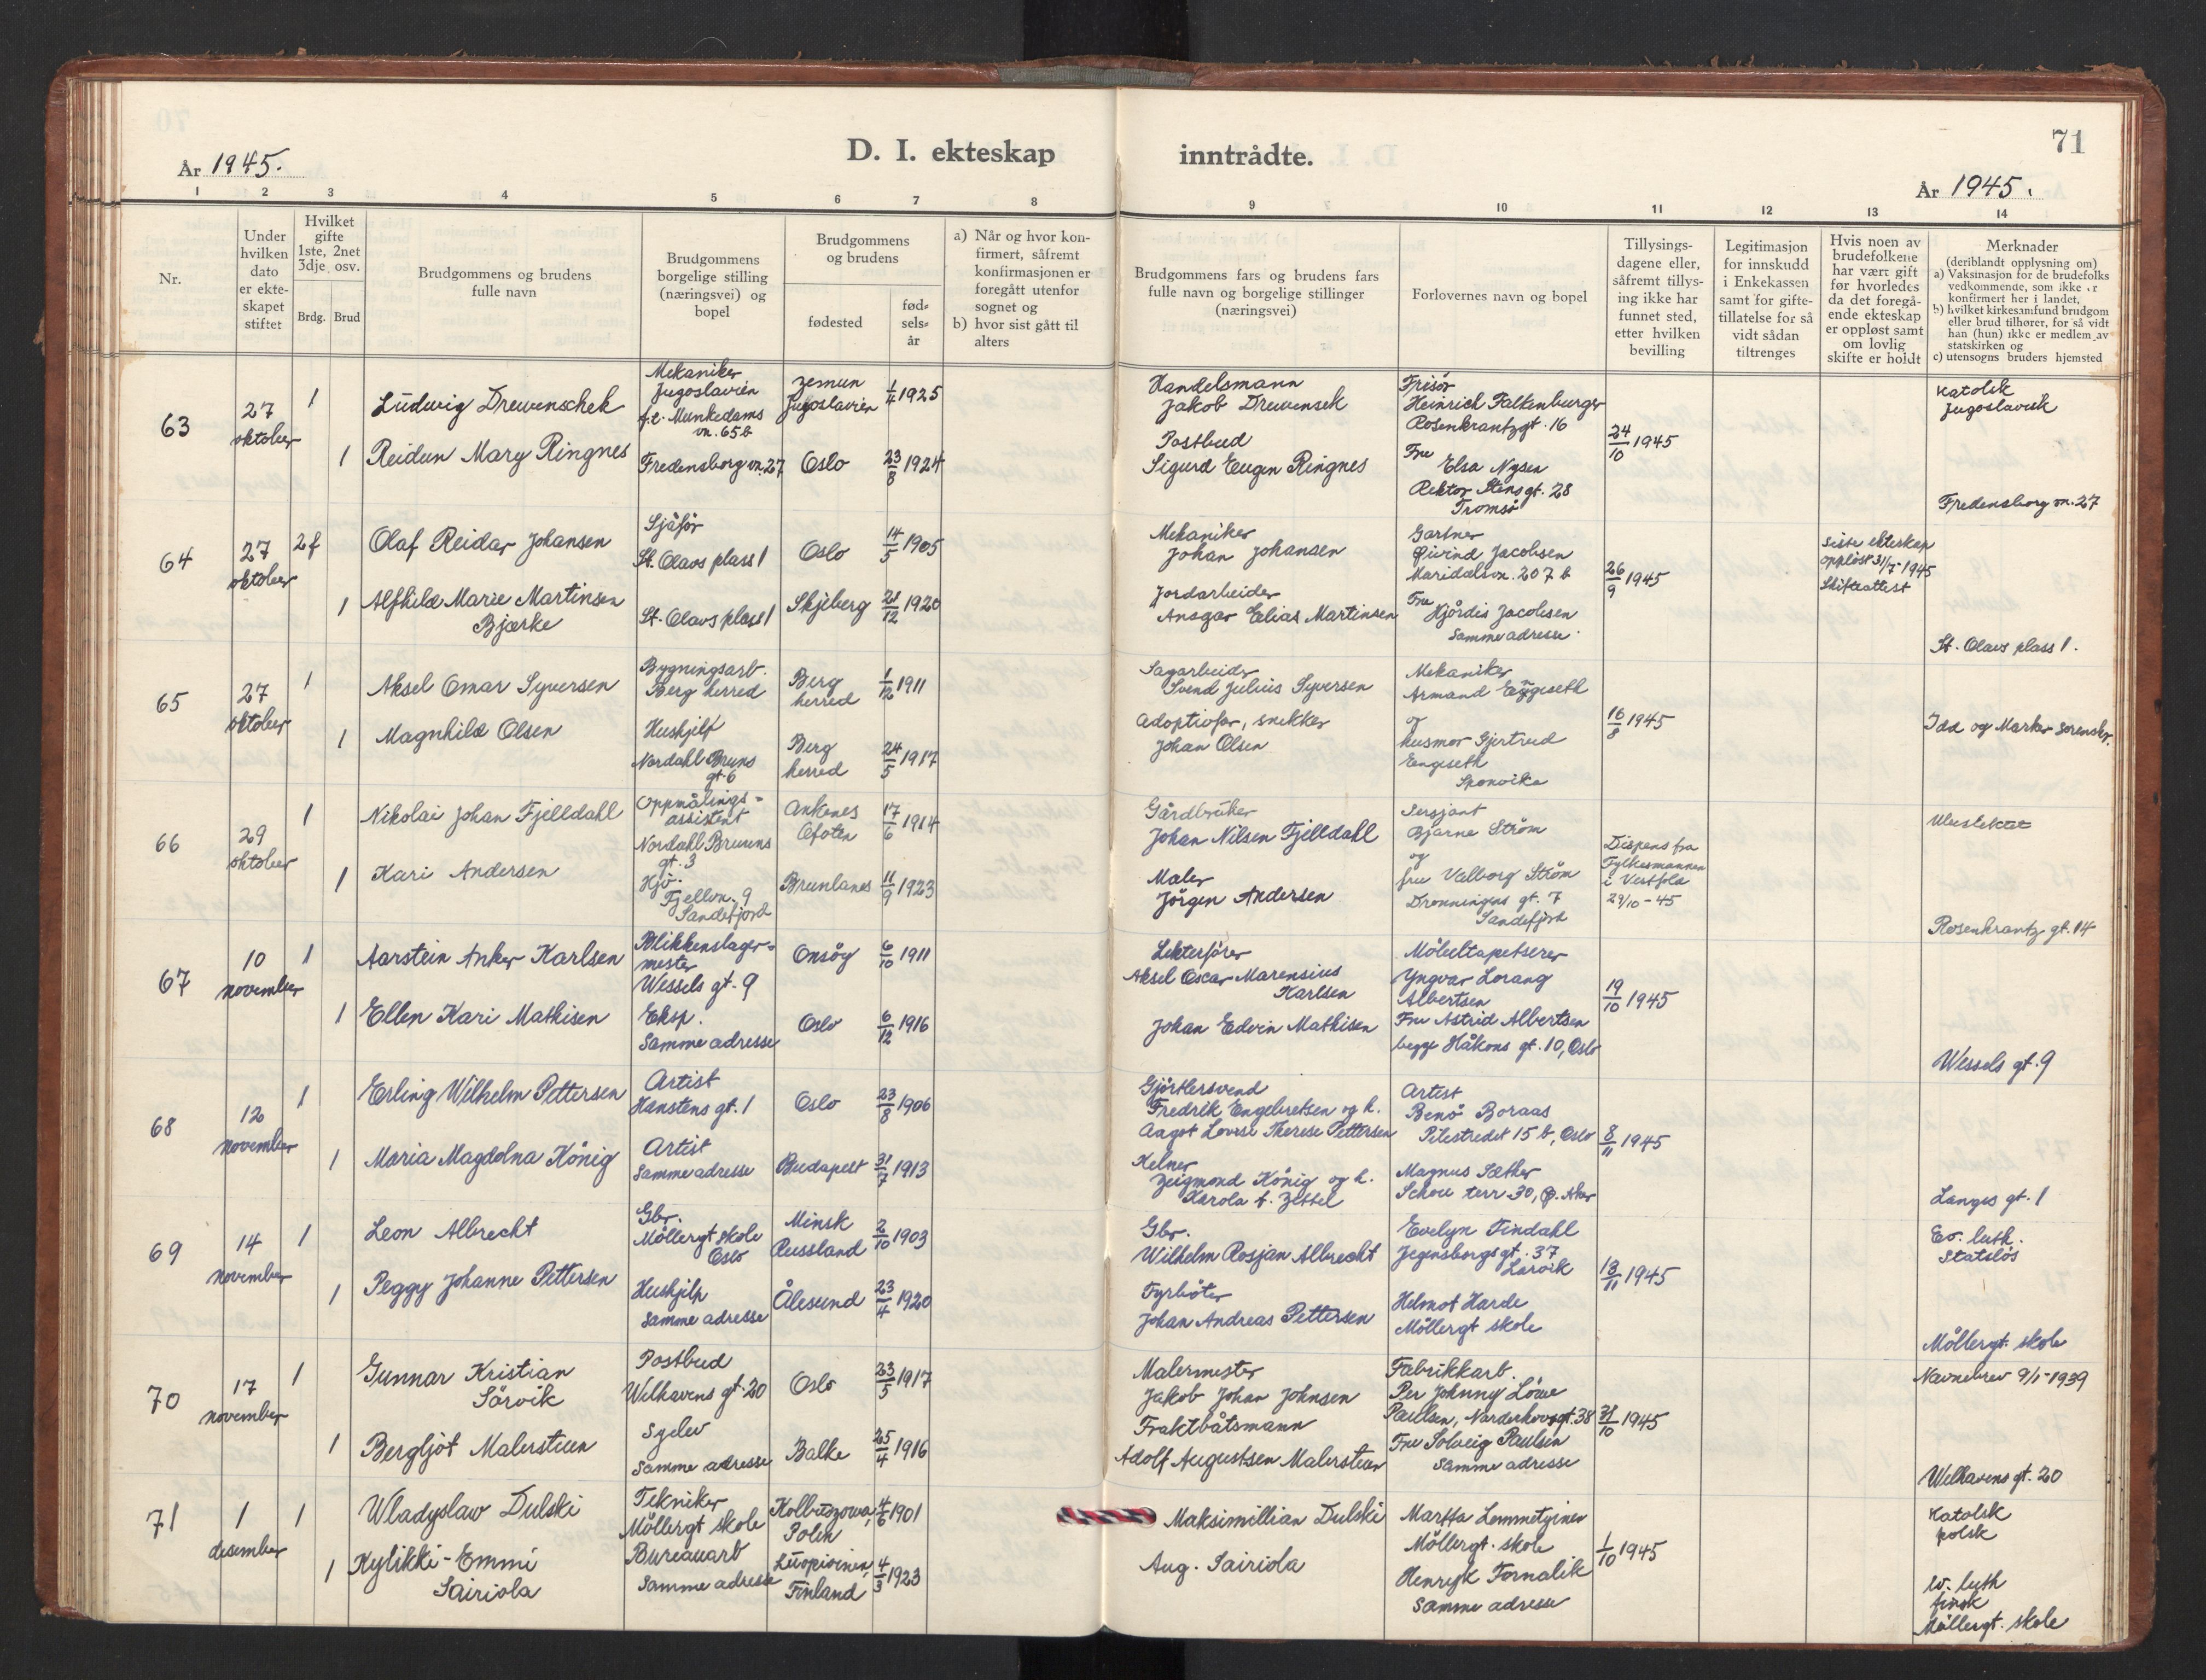 71
D. I. ekteskap
inntrådte.
År 1945.
År 1945.
1 2 3 4 5 6 7 8
9 10 11 12 13 14
Nr.
Under hvilken dato er ekte-skapet stiftet
Hvilket gifte 1ste, 2net 3dje, osv.
Brdg. Brud
Brudgommens og brudens fulle navn
Brudgommens borgelige stilling (næringsvei) og bopel
Brudgommens og brudens
fødested
fød-sels-år
a) Når og hvor kon-firmert, såfremt konfirmasjonen er foregått utenfor sognet og
b) hvor sist gått til alters
Brudgommens fars og brudens fars fulle navn og borgelige stillinger (næringsvei)
Forlovernes navn og bopel
Tillysings-dagene eller, såfremt tillys-ing ikke har funnet sted, etter hvilken bevilling
Legitimasjon for innskudd i Enkekassen samt for gifte-tillatelse for så vidt sådan tiltrenges
Hvis noen av brudefolkene har vært gift før hvorledes da det foregå-ende ekteskap er oppløst samt om lovlig skifte er holdt
Merknader
(deriblandt opplysning om)
a) Vaksinasjon for de brudefolks vedkommende, som ikke er konfirmert her i landet,
b) hvilket kirkesamfund brudgom eller brud tilhører, for så vidt han (hun) ikke er medlem av statskirken og
c) utensogns bruders hjemsted
63
27 oktober
1
Ludwig Drewenschek
Mekaniker
Jugoslavien
f.t. Munkedams
vn. 65 b
Zemun
Jugoslavien
1/4 1925
Handelsmann
Jakob Drewensek
Frisør
Heinrich Falkenburger
Rosenkrantzgt. 16
24/10 1945
Katolsk
Jugoslavisk
1
Reidun Mary Ringnes
Fredensborg vn. 27
Oslo
23/8 1924
Postbud
Sigurd Eugen Ringnes
Fru
Elsa Nysen
Rektor Stens gt. 28
Tromsø
Fredensborg vn. 27
64
27 oktober
2 f
Olaf Reidar Johansen
Sjåfør
St. Olavs plass 1
Oslo
14/5 1905
Mekaniker
Johan Johansen
Gartner
Øivind Jacobsen
Maridalsvn. 207 b
26/9 1945
Siste ekteskap
oppløst 31/5-1945
Skifteattest
1
Alfhild Marie Martinsen
Bjærke
St. Olavs plass 1
Skjeberg
21/12 1920
Jordarbeider
Ansgar Elias Martinsen
Fru
Hjørdis Jacobsen
Samme adresse.
St. Olavs plass 1.
65
27 oktober
1
Aksel Omar Syversen
Bygningsarb.
Berg herred
Berg
herred
1/12 1911
Sagarbeider
Svend Julius Syversen
Mekaniker
Armand Engeseth
16/8 1945
Idd og Marker Sorenskr.
1
Magnhild Olsen
Hushjelp
Nordahl Bruns
gt. 6
Berg
herred
24/5 1917
Adoptivfar, snekker
Johan Olsen
og
husmor Gjertrud
Engeseth
Sponvika
66
29 oktober
1
Nikolai Johan Fjelldahl
Oppmålings-
assistent
Nordahl Bruuns
gt. 3
Ankenes
Ofoten
17/6 1914
Gårdbruker
Johan Nilsen Fjelldahl
Sersjant
Bjarne Strøm
og
Dispens fra
Fylkesmannen
i Vestfold
29/10-45
1
Kari Andersen
Fjellvn. 9
Sandefjord
Brunlanes
11/9 1923
Maler
Jørgen Andersen
fru Valborg Strøm
Dronningens gt. 7
Sandefjord
Rosenkrantz gt. 14
67
10 november
1
Aarstein Anker Karlsen
Blikkenslager-
mester
Wessels gt. 9
Onsøy
6/10 1911
Lekterfører
Aksel Oscar Marensius
Karlsen
Møbeltapetserer
Yngvar Lorang
Albertsen
19/10 1945
1
Ellen Kari Mathisen
Eksp.
Samme adresse
Oslo
6/12 1916
Johan Edvin Mathisen
Fru Astrid Albertsen
begge Håkons gt. 10, Oslo
Wessels gt. 9
68
12 november
1
Erling Wilhelm Pettersen
Artist
Hanstens gt. 1
Oslo
23/8 1906
Gjørtlersvend
Fredrik Engebretsen og h.
Aagot Lovise Therese Pettersen
Artist
Benó Boraas
Pilestredet 15 b, Oslo
8/11 1945
1
Maria Magdolna König
Artist
Samme adresse
Budapest
31/7 1913
Kelner
Zsigmond König og h.
Karola f. Zettel
Magnus Sæther
Schou terr. 30, Ø. Aker
Langes gt. 1
69
14 november
1
Leon Albrecht
Gbr.
Møllergt skole
Oslo
Minsk
Russland
2/10 1903
Gbr.
Wilhelm Rosjan Albrecht
Evelyn Tindahl
Jegersborgs gt. 37
Larvik
13/11 1945
Ev. luth.
Statsløs
1
Peggy Johanne Pettersen
Hushjelp
Samme adresse
Ålesund
23/4 1920
Fyrbøter
Johan Andreas Pettersen
Helmot Harde
Møllergt skole
Møllergt. skole
70
17 november
1
Gunnar Kristian
Sørvik
Postbud
Welhavens gt. 20
Oslo
23/5 1917
Malermester
Jakob Johan Johnsen
Fabrikkarb.
Per Johnny Löwe
Paulsen, Norderhovsgt. 38
31/10 1945
Navnebrev 9/1-1939
1
Bergljot Malerstuen
Syelev
Samme adresse
Balke
25/4 1916
Fraktbåtsmann
Adolf Augustsen Malerstuen
Fru Solveig Paulsen
Samme adresse
Welhavens gt. 20
71
1 desember
1
Wladyslaw Dulski
Tekniker
Møllergt skole
Kolbuszowa,
Polen
4/6 1901
Maksimillian Dulski
Martta Lemmetyinen
Møllergt. skole
1/10 1945
Katolsk
polsk
1
Kylikki-Emmi
Sairiola
Bureauarb
Samme adresse
Luopioinen,
Finland
4/3 1923
Aug. Sairiola
Henryk Fornalik
Samme adresse
Ev. luth
finsk
Møllergt. skole